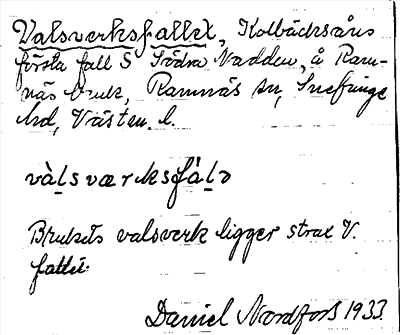 Valsverksfallet, Kolbäcksåns
första fall S Södra Nadden, å Ram-
näs bruk, Ramnäs sn, Snefringe
hd, Västm. l.
vàl̲s værksfál̲ə
Brukets valsverk ligger strax V.
fallet.
Daniel Nordfors 1933.